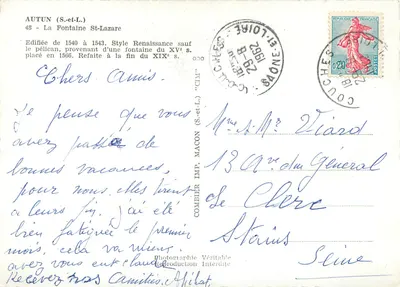 AUTUN (S.-et-L.)
43 - La Fontaine St-Lazare
Edifiée de 1540 à 1543. Style Renaissance sauf
le pélican, provenant d'une fontaine du XVe s.
placé en 1566. Refaite à la fin du XIXe s.
Chers Amis.
Je pense que vous
avez passé de
bonnes vacances,
pour nous, elles tirent
a leurs fin, j'ai été
bien fatiguée le premier
mois, cela va mieux.
avez vous eut chaud
Recevez nos Amitiés.
COMBIER IMP. MACON (S.-et-L.) "CIM"
Photographie Véritable
Reproduction Interdite
COUCHES
SAONE-ET-LOIRE
29-8
1962
0,20
COUCHES
Mme et Mr Viard
13 Ave du Général
Le Clerc
Stains
Seine